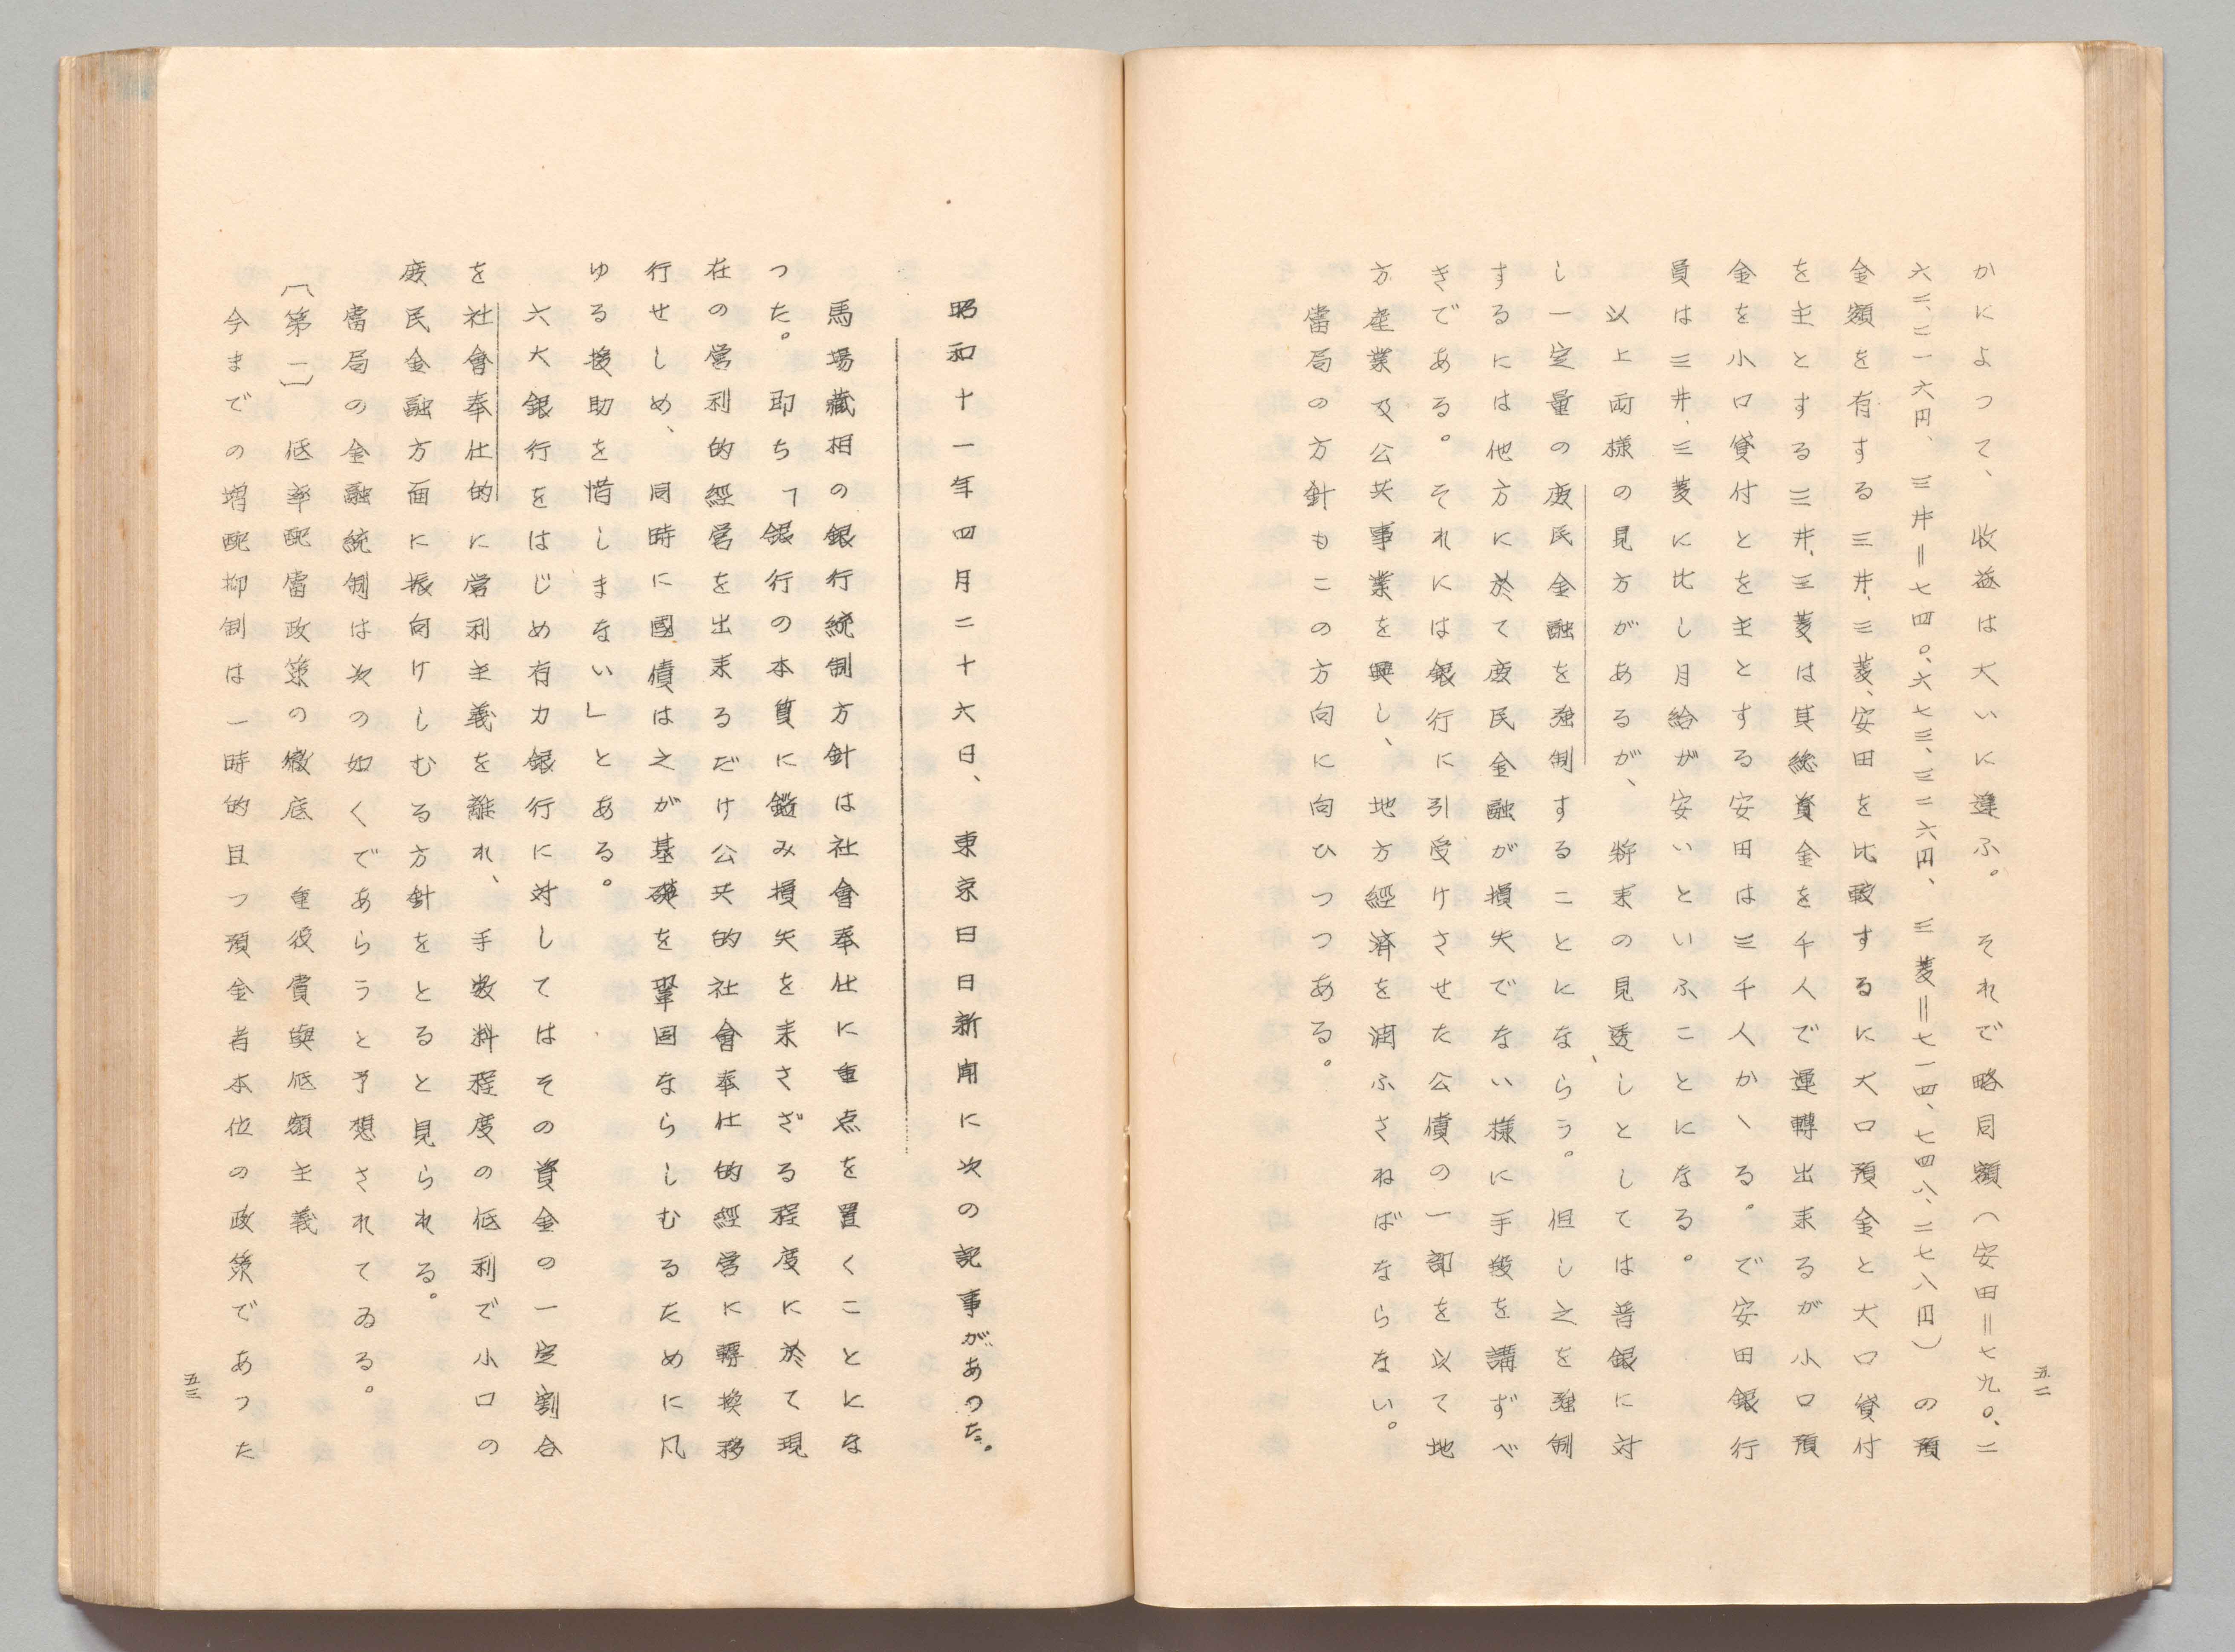 かによつて、収益は大いに違ふ。それで略同額（安田＝七九〇、二
六三、二一六円、三井＝七四〇、六七三、三二六円、三菱＝七一四、七四八、二七八円）の預
金額を有する三井、三菱、安田を比較するに大口預金と大口貸付
を主とする三井、三菱は其総資金を千人で運轉出来るが小口預
金を小口貸付とを主とする安田は三千人かゝる。で安田銀行
員は三井、三菱に比し月給が安いといふことになる。
以上両様の見方があるが、将来の見透しとしては普銀に対
し一定量の庶民金融を強制することにならう。但し之を強制
するには他方に於て庶民金融が損失でない様に手段を講ずべ
きである。それには銀行に引受けさせた公債の一部を以て地
方産業及公共事業を興し、地方経済を潤ふさねばならない。
當局の方針もこの方向に向ひつつある。
五二
昭和十一年四月二十六日、東京日日新聞に次の記事があつた。
馬場藏相の銀行統制方針は社會奉仕に重点を置くことにな
つた。即ち「銀行の本質に鑑み損失を来さざる程度に於て現
在の営利的經営を出来るだけ公共的社會奉仕的經営に轉換移
行せしめ、同時に國債は之が基礎を鞏固ならしむるために凡
ゆる援助を惜しまない」とある。
六大銀行をはじめ有力銀行に対してはその資金の一定割合
を社會奉仕的に営利主義を離れ、手数料程度の低利で小口の
庶民金融方面に振向けしむる方針をとると見られる。
當局の金融統制は次の如くであらうと予想されてゐる。
〔第一〕　低率配當政策の徹底　重役賞與低額主義
今までの増配抑制は一時的且つ預金者本位の政策であつた
五三